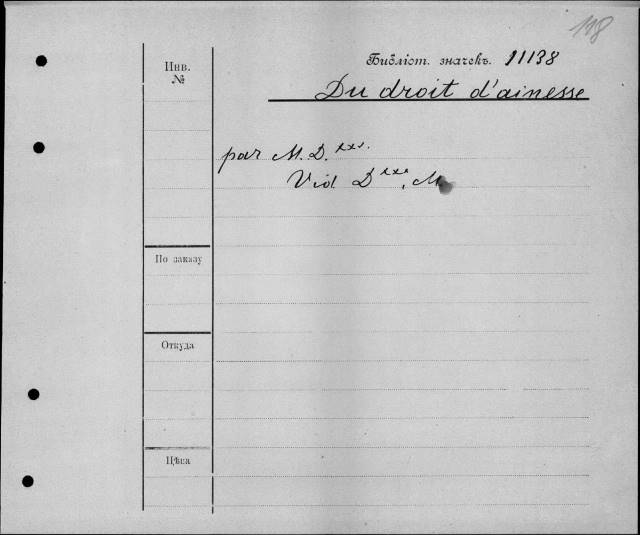 118
Библіот. значекъ. 11138
Du droit d'ainesse
Инв.
№
par M. D.***.
Vid D***, M.
По заказу
Откуда
Цѣна